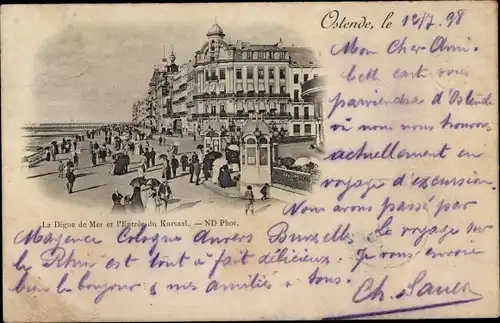 Ostende, le 12/7. 98
Mon Cher Ami.
Cett cart vous
parviendra d'Ostend
où nous nous trouvons
actuellement en
voyage d'excursion.
Nous avons passé par
La Digue de Mer et l'Entrée du Kursaal. — ND Phot.
Cologne Anvers Bruxelles. Le voyage sur
le Rhin est tout à fait délicieux. Je vous envoie
bien le bonjour & mes amitiés à tous.
Ch. Sauer